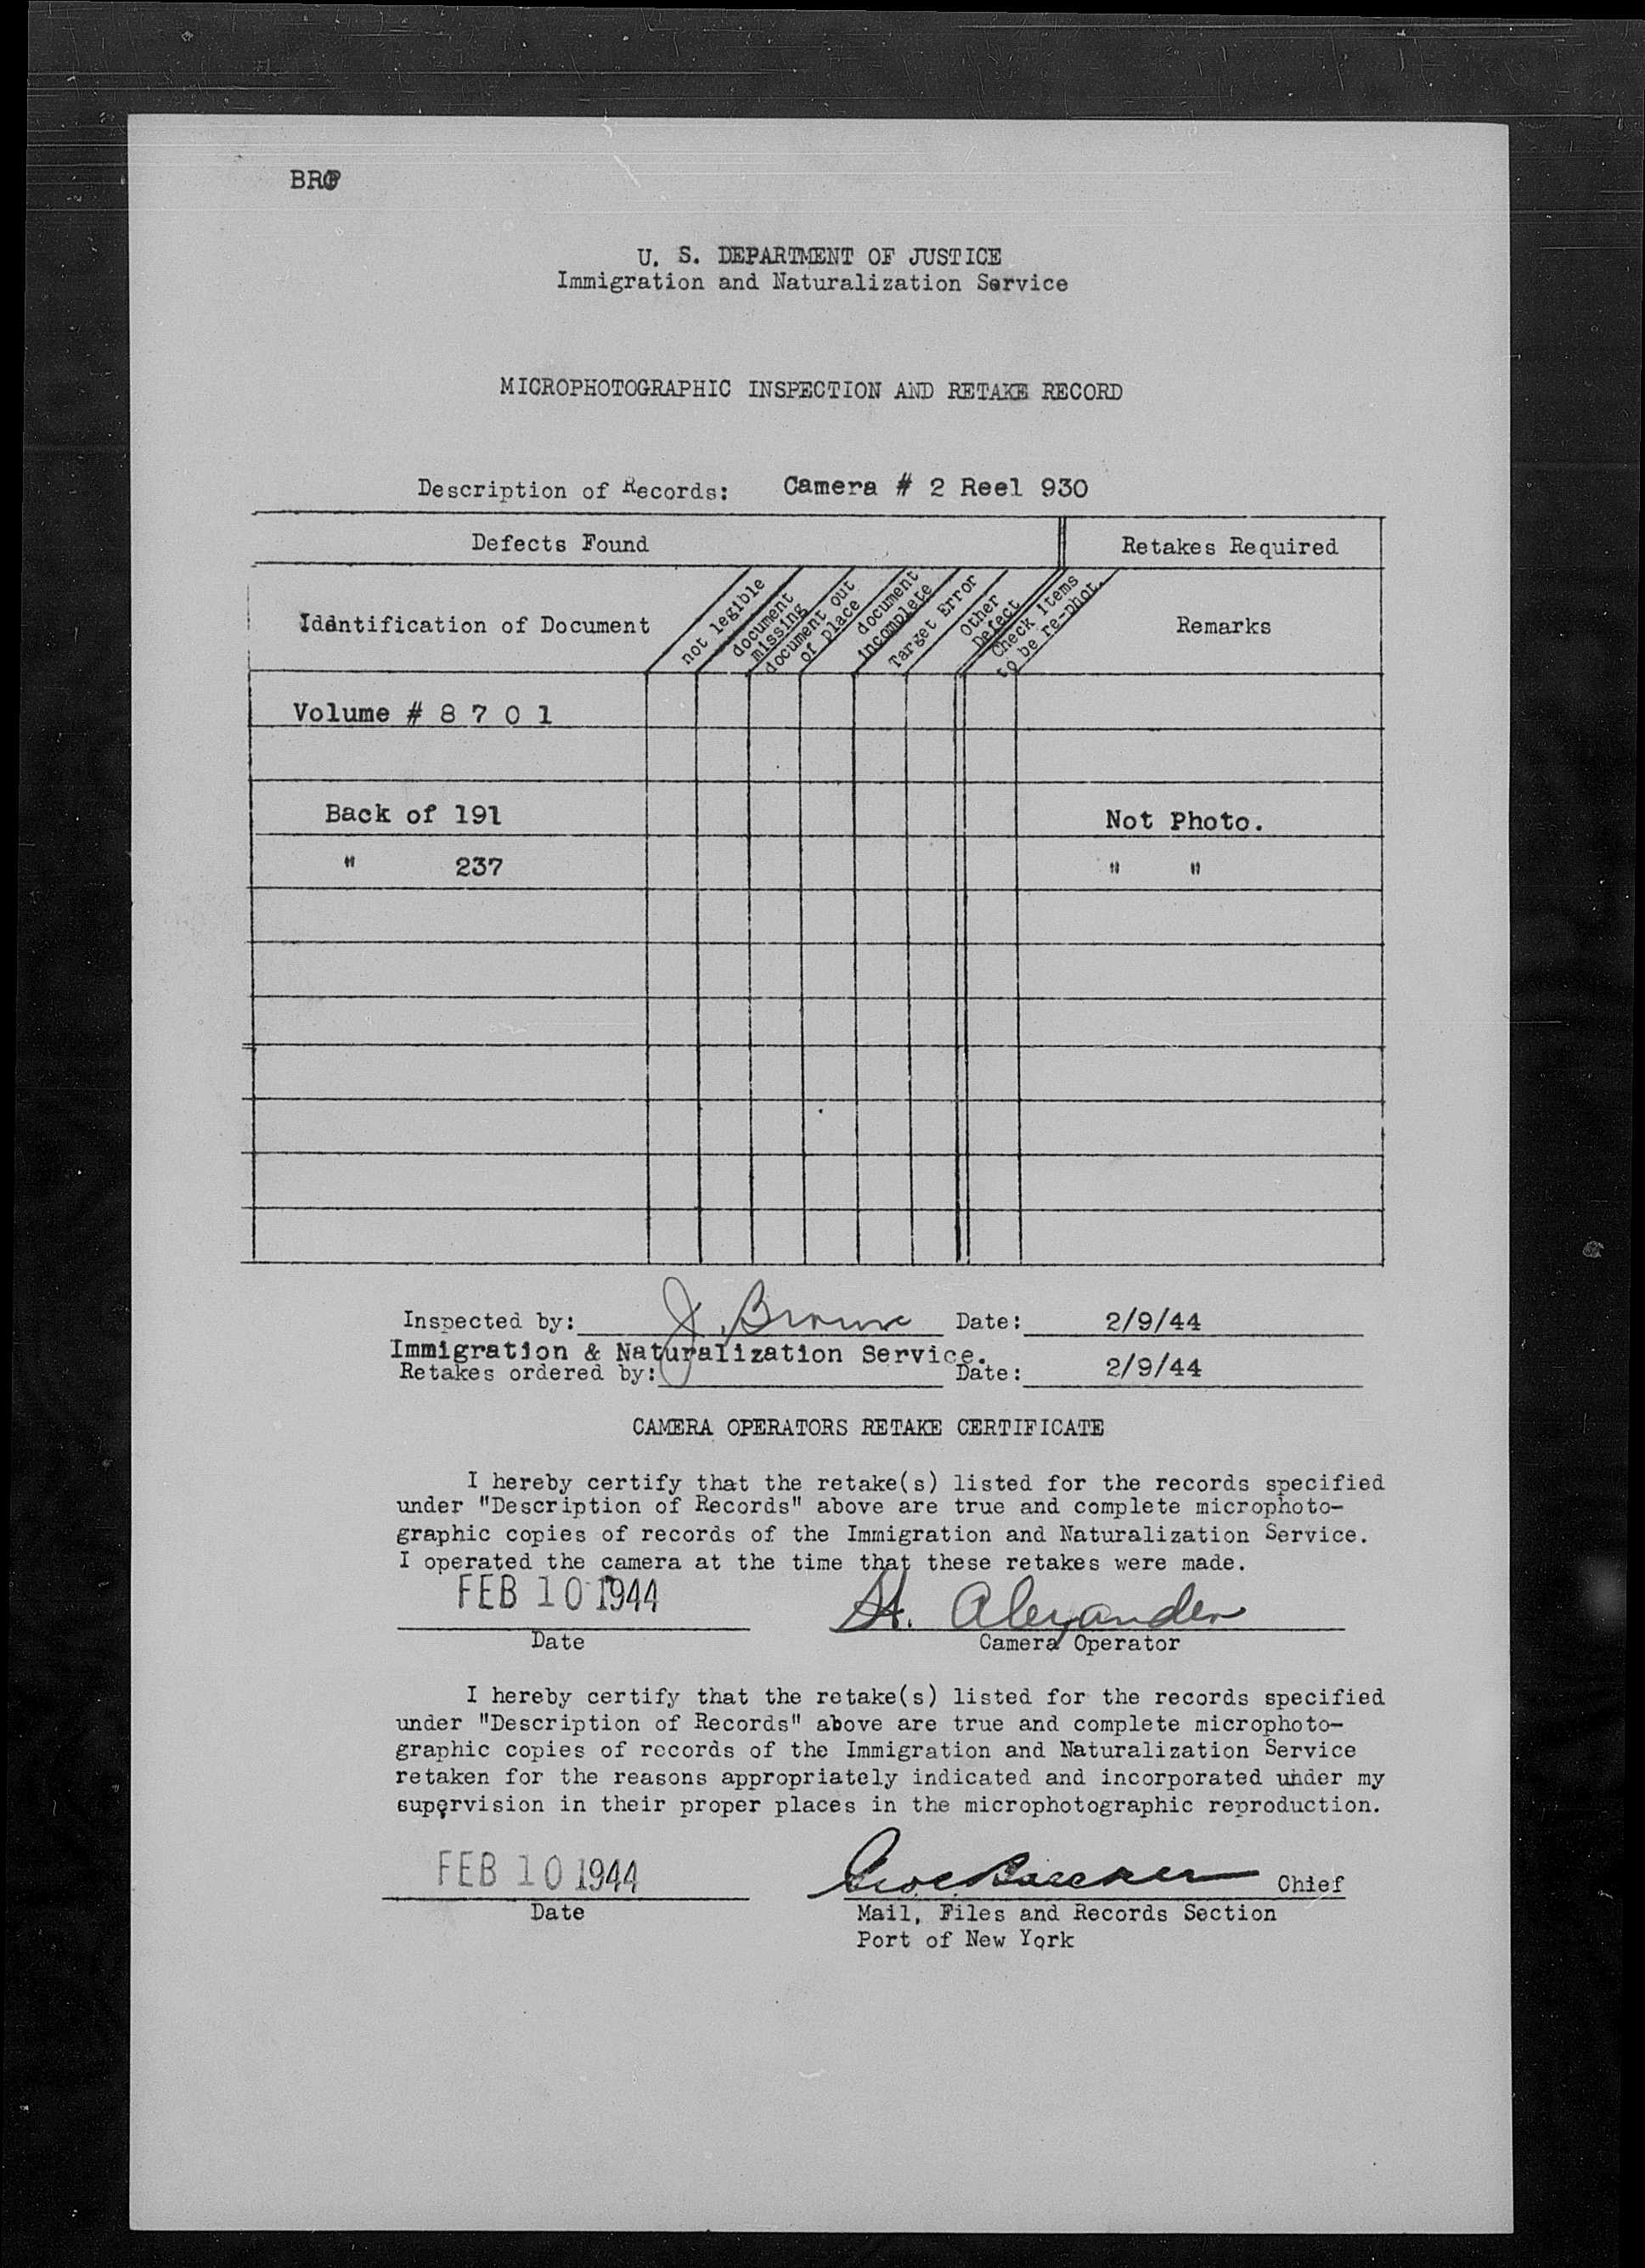 U. S. DEPARTMENT OF JUSTICE
Immigration and Naturalization Service
MICROPHOTOGRAPHIC INSPECTION AND RETAKE RECORD
Description of Records: Camera # 2 Reel 930
Defects Found
Retakes Required
Identification of Document
not legible
document
missing
document out
of place
document
incomplete
Target Error
Other
Defect
Check items
to be re-phot.
Remarks
Volume # 8 7 0 1
Back of 191 Not Photo.
" 237 " "
Inspected by: J. Browne Date: 2/9/44
Immigration & Naturalization Service.
Retakes ordered by: Date: 2/9/44
CAMERA OPERATORS RETAKE CERTIFICATE
I hereby certify that the retake(s) listed for the records specified
under "Description of Records" above are true and complete microphoto-
graphic copies of records of the Immigration and Naturalization Service.
I operated the camera at the time that these retakes were made.
FEB 10 1944 H. Alexander
Date Camera Operator
I hereby certify that the retake(s) listed for the records specified
under "Description of Records" above are true and complete microphoto-
graphic copies of records of the Immigration and Naturalization Service
retaken for the reasons appropriately indicated and incorporated under my
supervision in their proper places in the microphotographic reproduction.
FEB 10 1944 Chief
Date Mail, Files and Records Section
Port of New York